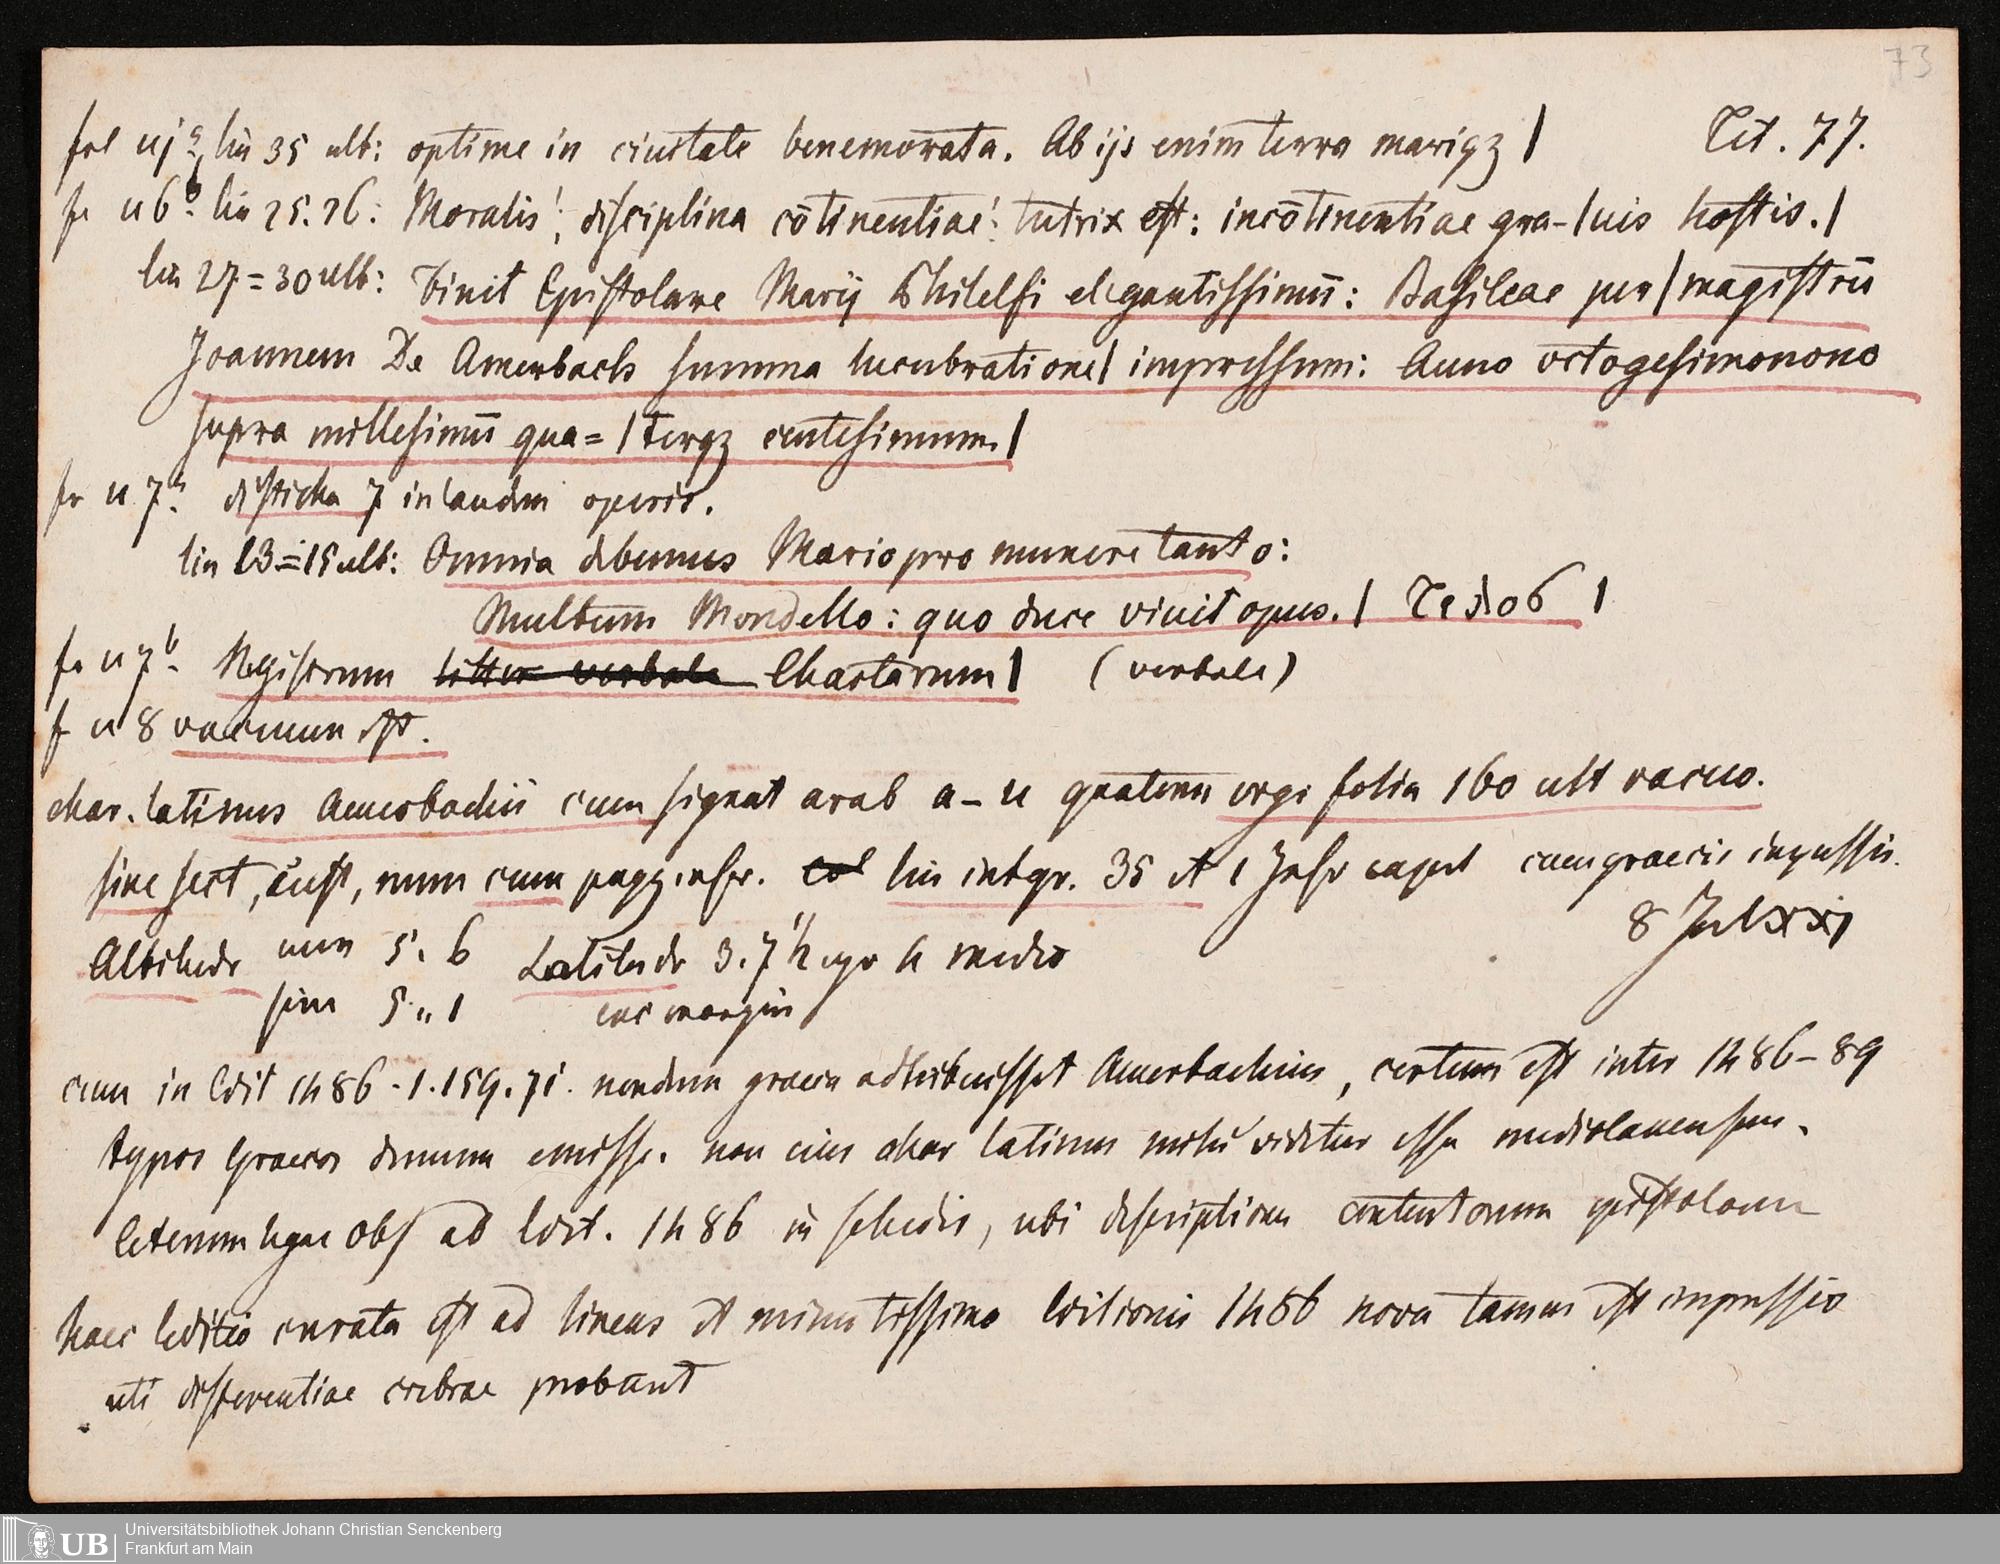 73
fol uj a, lin 35 ult: optime in ciuitate benemorata. Ab ijs enim terra mariqz | Tit. 77.
fo u6 b. lin 25. 26: Moralis: disciplina cōtinentiae: tutrix est: incōtinentiae gra-|uis hostis.|
lin 27=30 ult: Finit Epistolare Marij Philelfi elegantissimū: Basileae per | magistrū
Joannem De Amerbach summa lucubratione| impressum: Anno octogesimonono
supra millesimū qua=|terqz centesimum.|
fo u 7 a. disticha 7 in laudem operis.
lin 13=15 ult: Omnia debemus Mario pro munere tanto:
Multum Mondello: quo duce viuit opus. |
fo u 7 b. Registrum Chartarum | (verbale)
f u 8 vacuum est.
char. latinus Amerbachii cum signat arab a-u quatern ergo folia 160 ult vacuo.
sine sect, cust, num cum pagg. lin integr. 35 et 1 caput cum graecis impressis.
8 Jul xxj
Altitudo num 5. 6 Latitudo 3. 7 medio
sine 5. " 1 inc margin
cum in Edit 1486. 1. 159. 71. nondum graeca adhibuisset Amerbachius, certum est inter 1486-89
typos Graecos demum emisse. non eius char latinus mihi videtur esse mediolanensem.
Ceterum obs ad Edit. 1486 in schedis, ubi descriptionem contentorum epistolarum
haec Editio curata est ad lineas et minutissima Editionis 1486 nova tamen est impressio
uti differentiae crebrae probant
Universitätsbibliothek Johann Christian Senckenberg
UB Frankfurt am Main